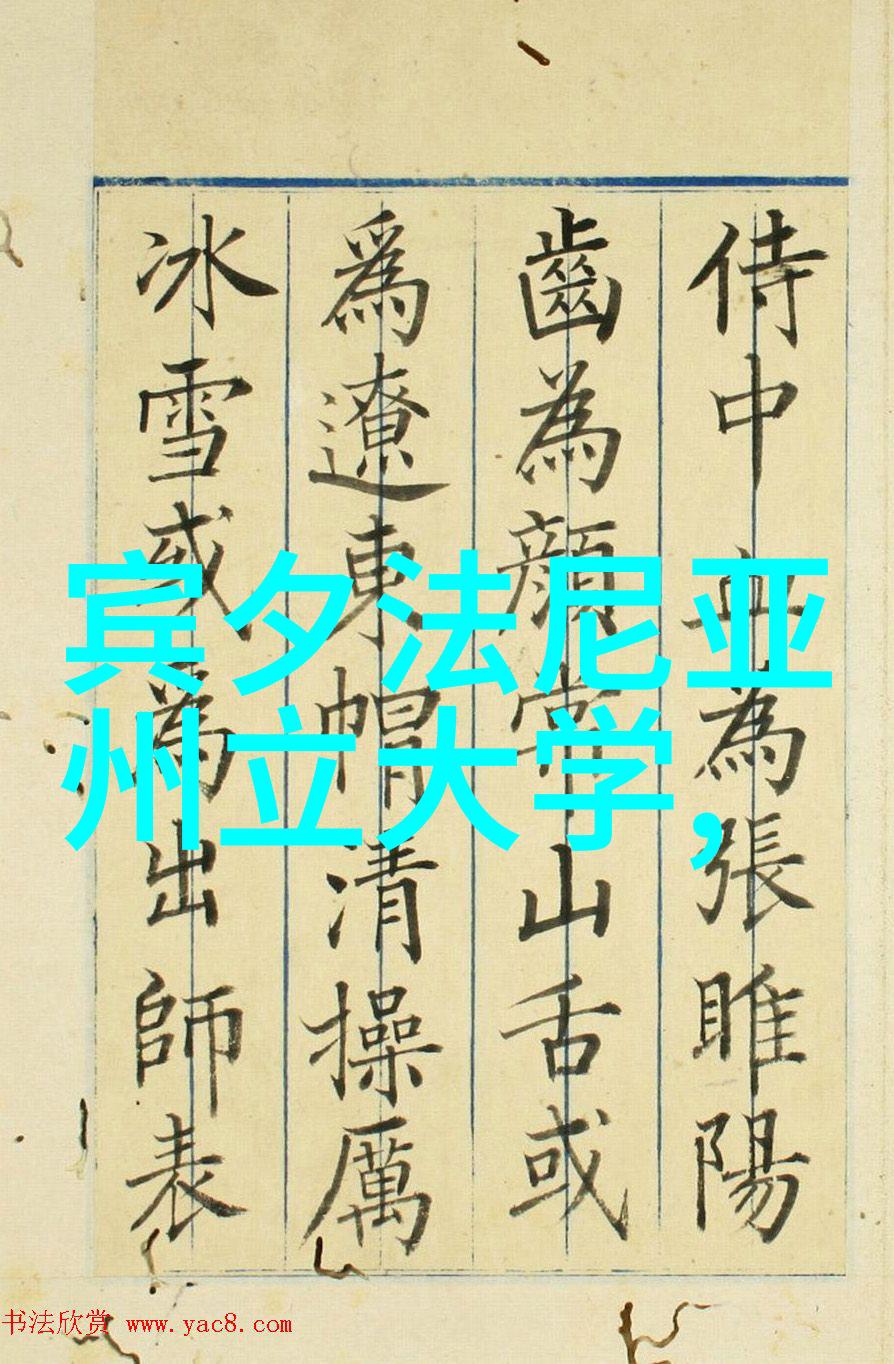 侍中血為張睢陽
齒為顏常山舌或
爲遼東帽清操厲
冰雪或為出師表
宾夕法尼亚
州立大学,
书法欣赏 www.yac8.com